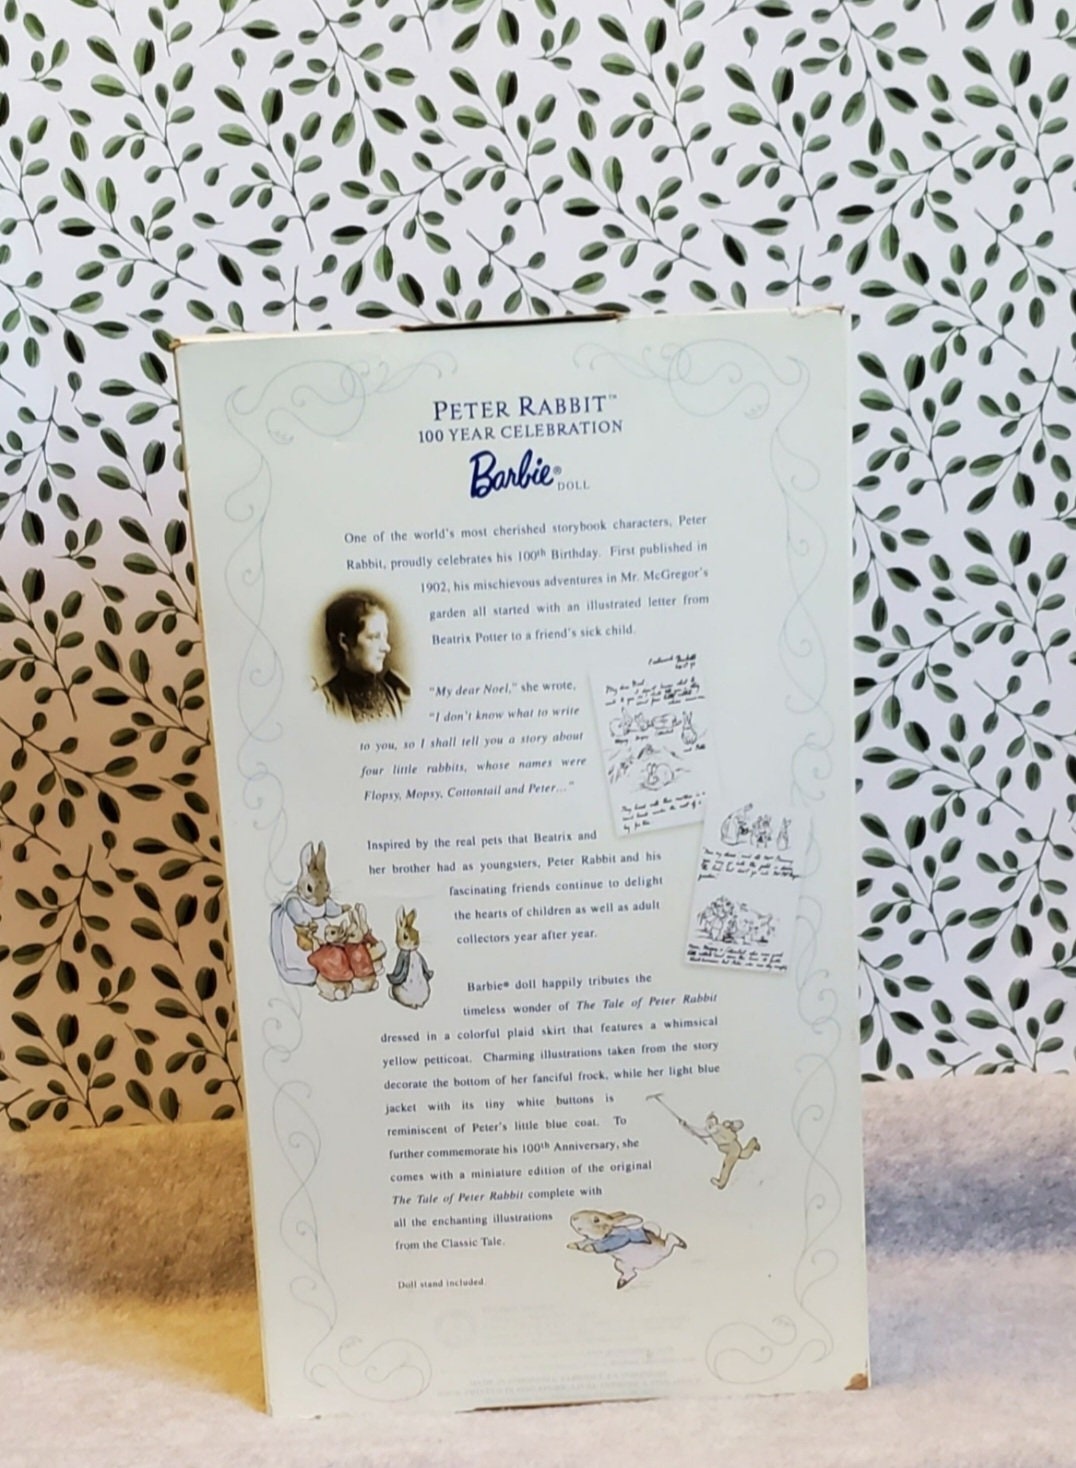 PETER RABBIT™
100 YEAR CELEBRATION
Barbie® DOLL
One of the world's most cherished storybook characters, Peter
Rabbit, proudly celebrates his 100th Birthday. First published in
1902, his mischievous adventures in Mr. McGregor's
garden all started with an illustrated letter from
Beatrix Potter to a friend's sick child.
"My dear Noel," she wrote,
"I don't know what to write
to you, so I shall tell you a story about
four little rabbits, whose names were
Flopsy, Mopsy, Cottontail and Peter..."
Inspired by the real pets that Beatrix and
her brother had as youngsters, Peter Rabbit and his
fascinating friends continue to delight
the hearts of children as well as adult
collectors year after year.
Barbie® doll happily tributes the
timeless wonder of The Tale of Peter Rabbit
dressed in a colorful plaid skirt that features a whimsical
yellow petticoat. Charming illustrations taken from the story
decorate the bottom of her fanciful frock, while her light blue
jacket with its tiny white buttons is
reminiscent of Peter's little blue coat. To
further commemorate his 100th Anniversary, she
comes with a miniature edition of the original
The Tale of Peter Rabbit complete with
all the enchanting illustrations
from the Classic Tale.
Doll stand included.